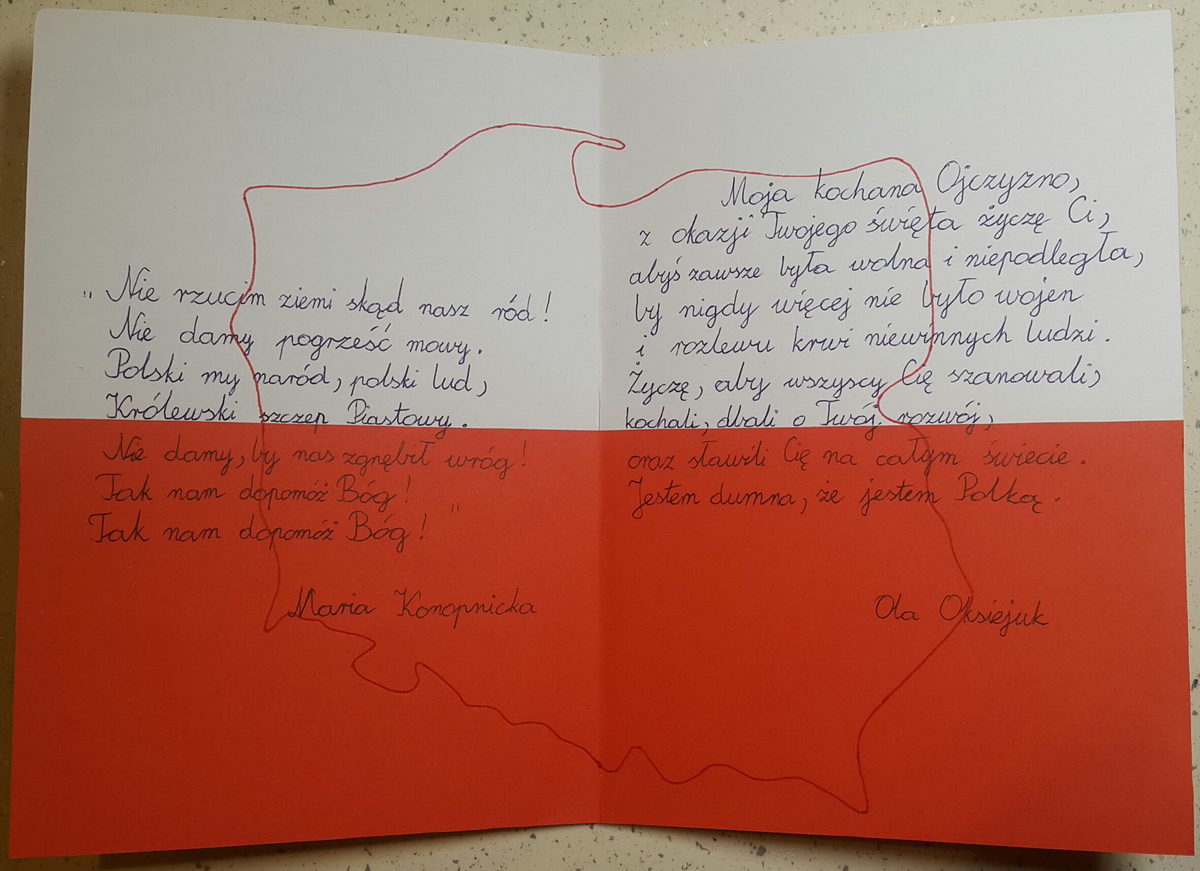 „Nie rzucim ziemi skąd nasz ród!
Nie damy pogrześć mowy.
Polski my naród, polski lud,
Królewski szczep Piastowy.
Nie damy, by nas zgnębił wróg!
Tak nam dopomóż Bóg!
Tak nam dopomóż Bóg!"
Maria Konopnicka
Moja kochana Ojczyzno,
z okazji Twojego święta życzę Ci,
abyś zawsze była wolna i niepodległa,
by nigdy więcej nie było wojen
i rozlewu krwi niewinnych ludzi.
Życzę, aby wszyscy Cię szanowali,
kochali, dbali o Twój rozwój,
oraz sławili Cię na całym świecie.
Jestem dumna, że jestem Polką.
Ola Oksiejuk